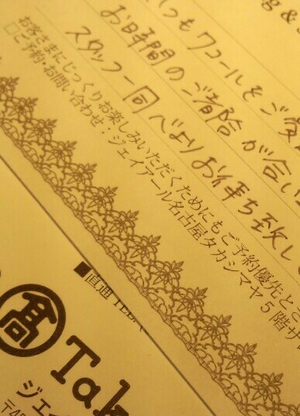 いつもワコールをご愛
お時間のご都合が合い
スタッフ一同心よりお待ち致し
お客さまにじっくりお楽しみいただくためにもご予約優先とさ
□ご予約・お問い合わせ：ジェイアール名古屋タカシマヤ5階サ
■直通
髙 Tak
ジェイ
〒4